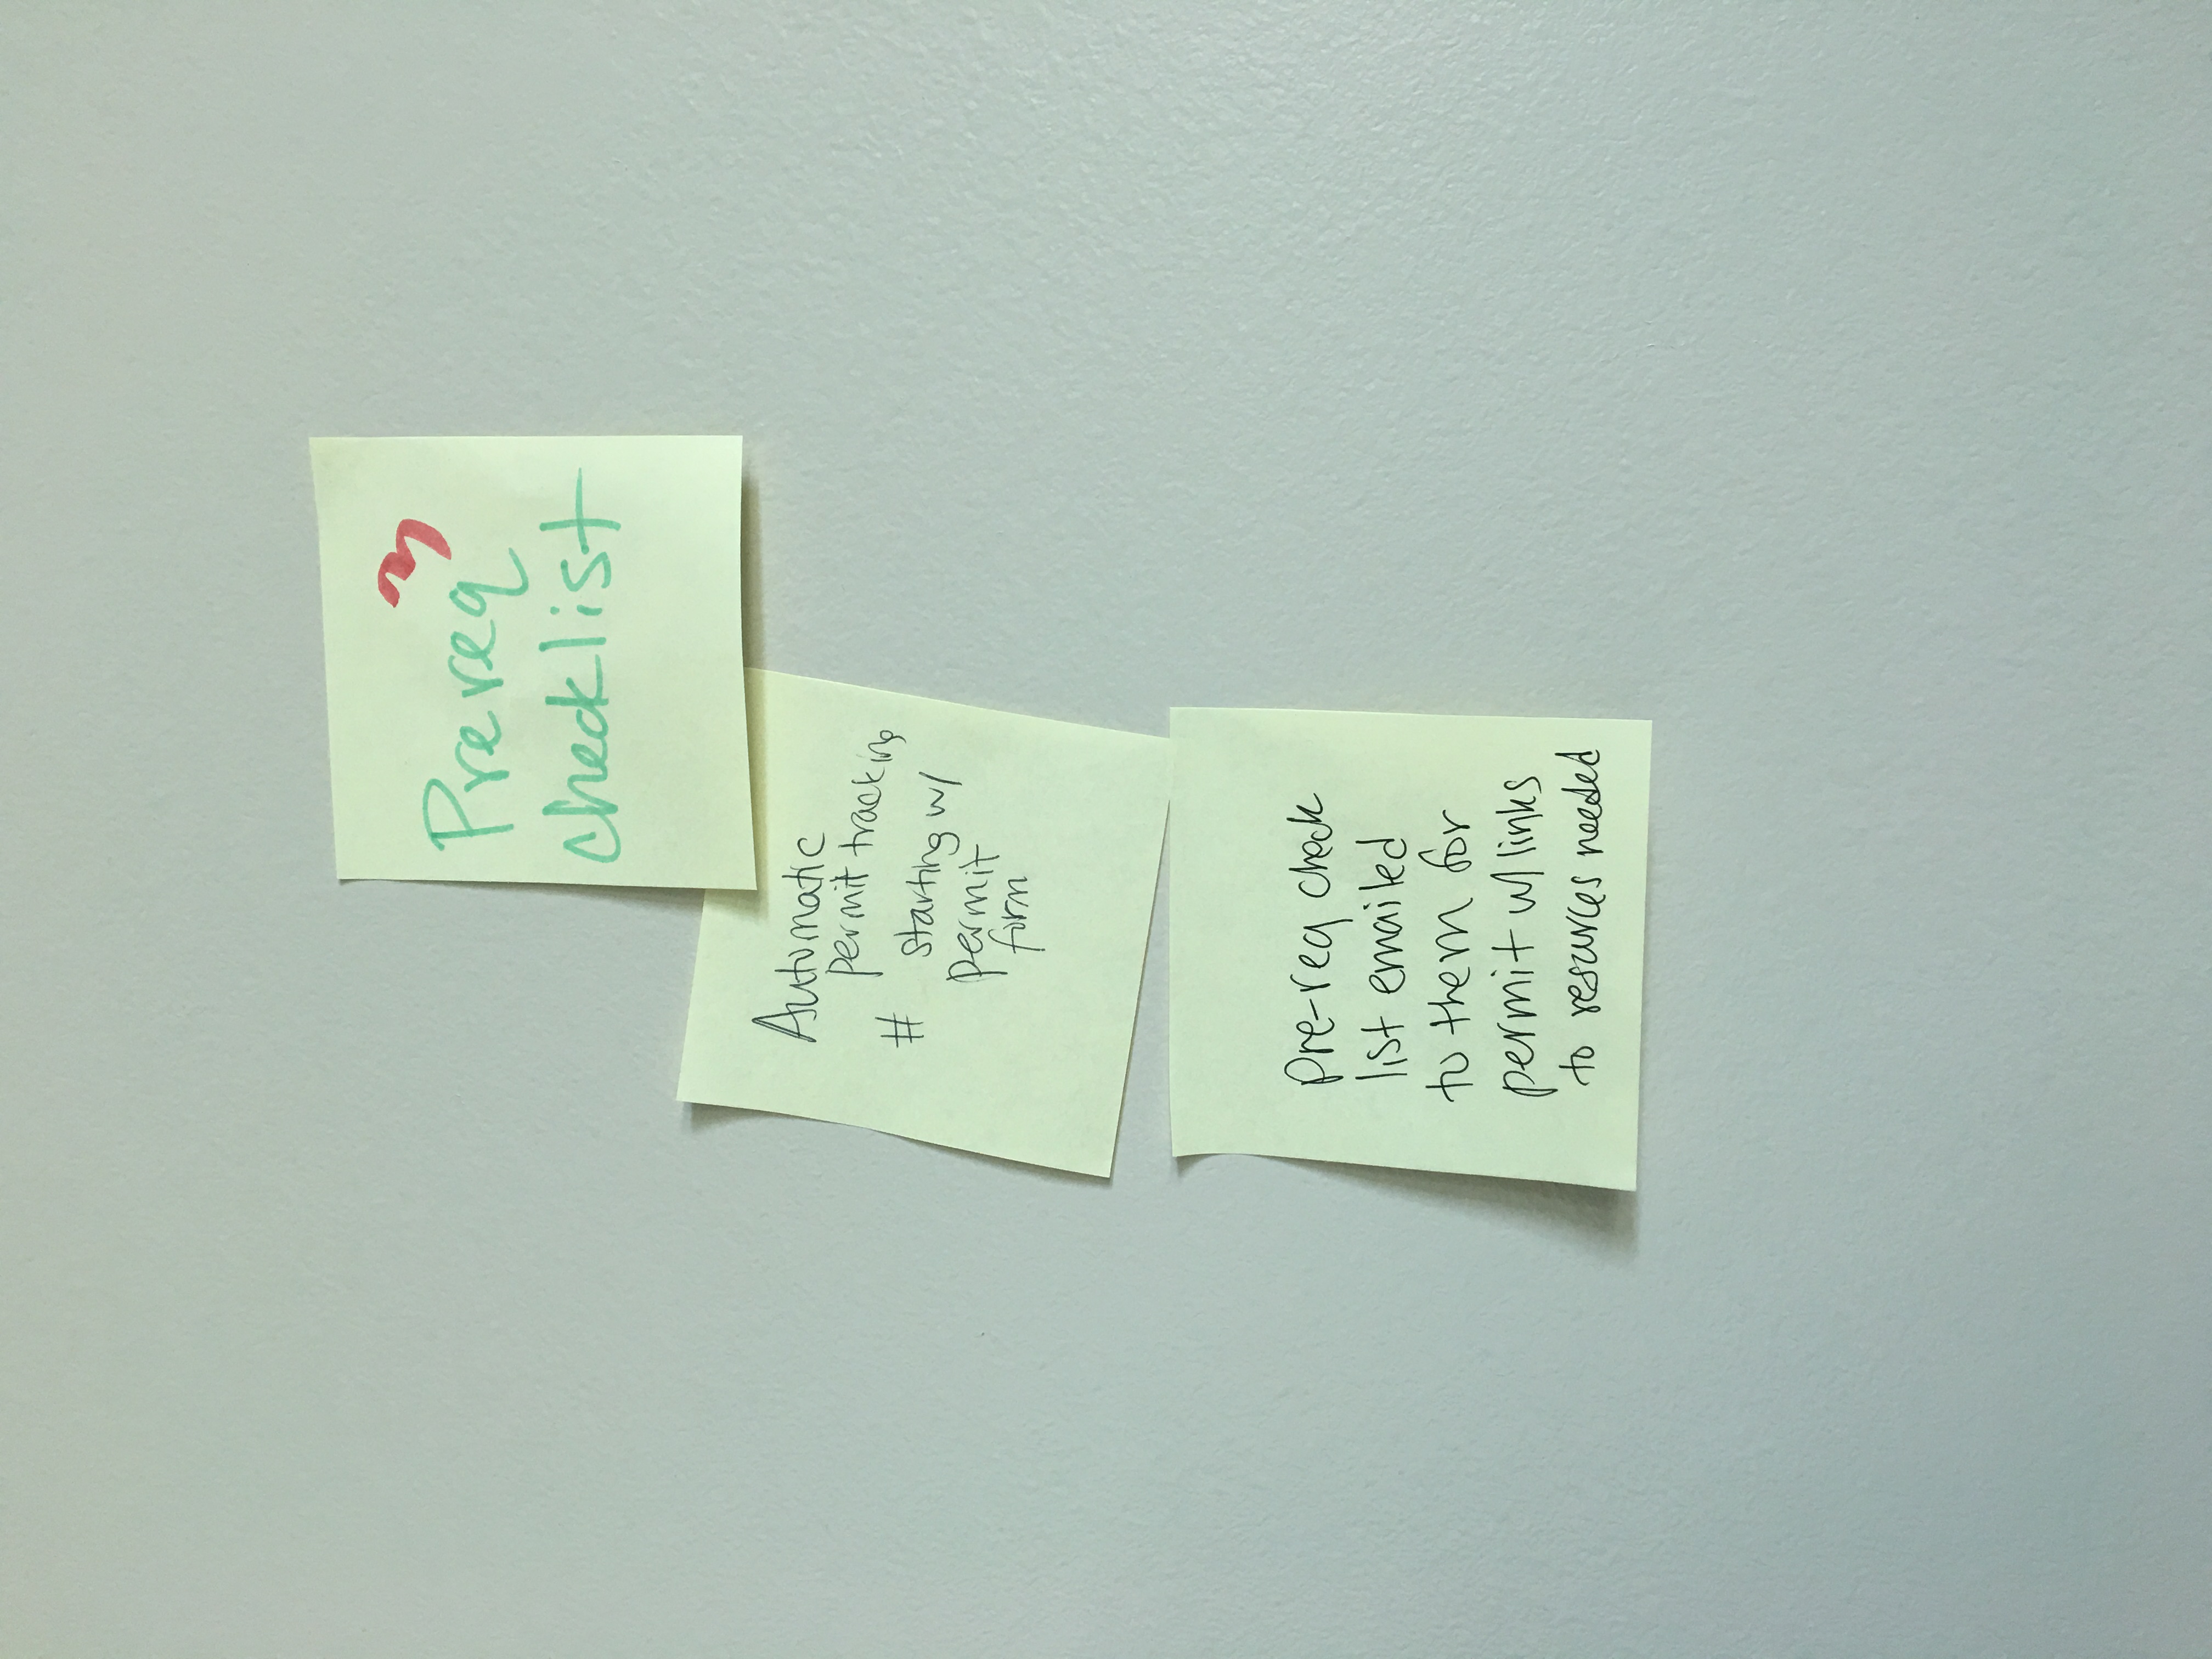 3
Prereq
checklist
Automatic
permit tracking
# starting w/
permit
form
pre-req check
list emailed
to them for
permit w/ links
to resources needed